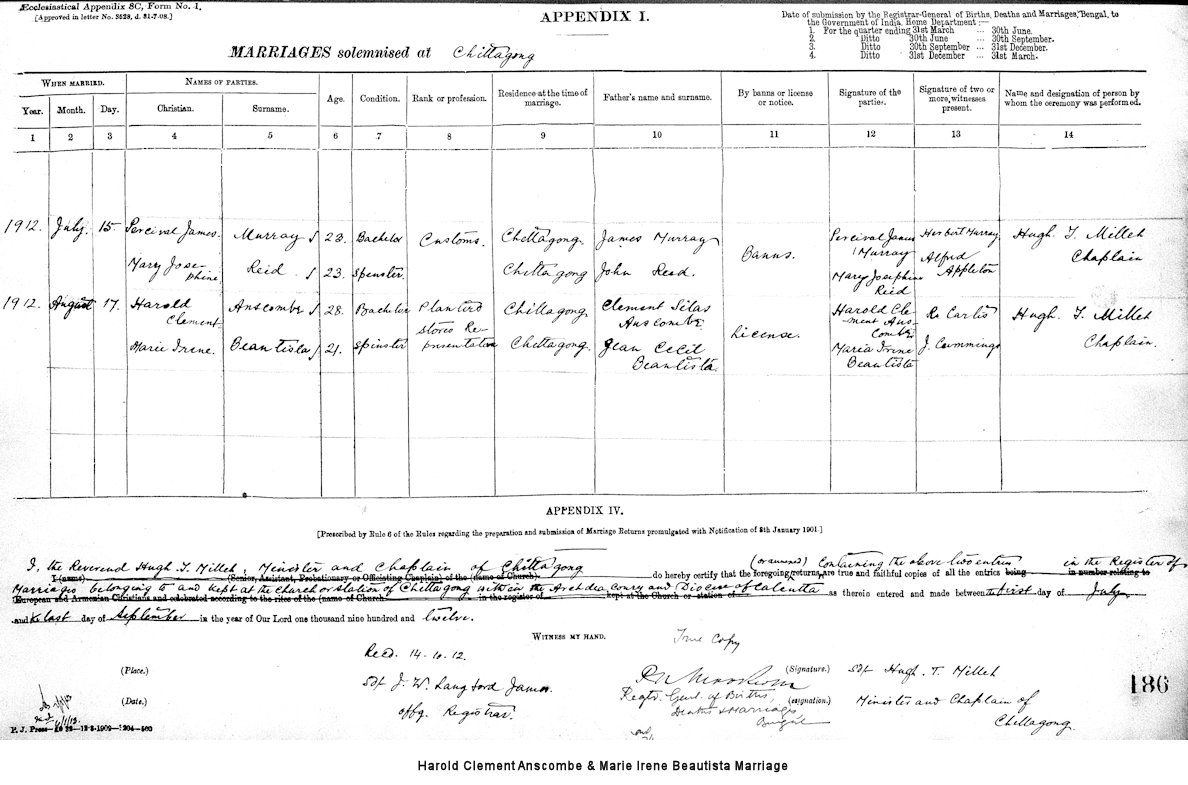 Ecclesiastical Appendix 8C, Form No. 1.
[Approved in letter No. 3528, d. 31-7-08.]
APPENDIX I.
Date of submission by the Registrar-General of Births, Deaths and Marriages, Bengal, to
the Government of India, Home Department :—
1. For the quarter ending 31st March ... 30th June.
2. Ditto 30th June ... 30th September.
3. Ditto 30th September ... 31st December.
4. Ditto 31st December ... 31st March.
MARRIAGES solemnised at Chittagong
WHEN MARRIED. NAMES OF PARTIES. Age. Condition. Rank or profession. Residence at the time of marriage. Father's name and surname. By banns or license or notice. Signature of the parties. Signature of two or more witnesses present. Name and designation of person by whom the ceremony was performed.
Year. Month. Day. Christian. Surname.
1 2 3 4 5 6 7 8 9 10 11 12 13 14
1912. July. 15. Percival James. Murray 23. Bachelor Customs. Chittagong. James Murray Banns. Percival James Murray Herbert Murray Hugh. T. Milleh Chaplain
Mary Josephine Reid 23. Spinster. Chittagong John Reid. Mary Josephine Reid Alfred Appleton
1912. August 17. Harold Clement. Anscombe 28. Bachelor Planters stores Representative Chittagong Clement Silas Anscombe. License. Harold Clement Anscombe R. Carlis Hugh. T. Milleh Chaplain.
Marie Irene. Beautista 21. Spinster Chittagong. Jean Cecil Beautista. Maria Irene Beautista J. Cummings
APPENDIX IV.
[Prescribed by Rule 6 of the Rules regarding the preparation and submission of Marriage Returns promulgated with Notification of 8th January 1901.]
I, the Reverend Hugh. T. Milleh, Minister and Chaplain of Chittagong (or annexed) Containing the above two entries in the Register of
I (name) (Senior, Assistant, Probationary or Officiating Chaplain) of the (name of Church) do hereby certify that the foregoing returns, are true and faithful copies of all the entries being in number relating to
Marriages belonging to and kept at the Church or station of Chittagong in the Archdeaconry and Diocese of Calcutta
European and Armenian Christians and celebrated according to the rites of the (name of Church in the register of kept at the Church or station of as therein entered and made between the first day of July
and the last day of September in the year of Our Lord one thousand nine hundred and twelve.
WITNESS MY HAND. True Copy
Recd. 14.10.12.
(Place.) (Signature.) Sd/- Hugh. T. Milleh
Sd/- J. W. Langford James.
(Date.) Offg. Registrar. Regtr. Genl. of Births, Deaths & Marriages Bengal (Designation.) Minister and Chaplain of Chittagong.
186
P. J. Press—
Harold Clement Anscombe & Marie Irene Beautista Marriage